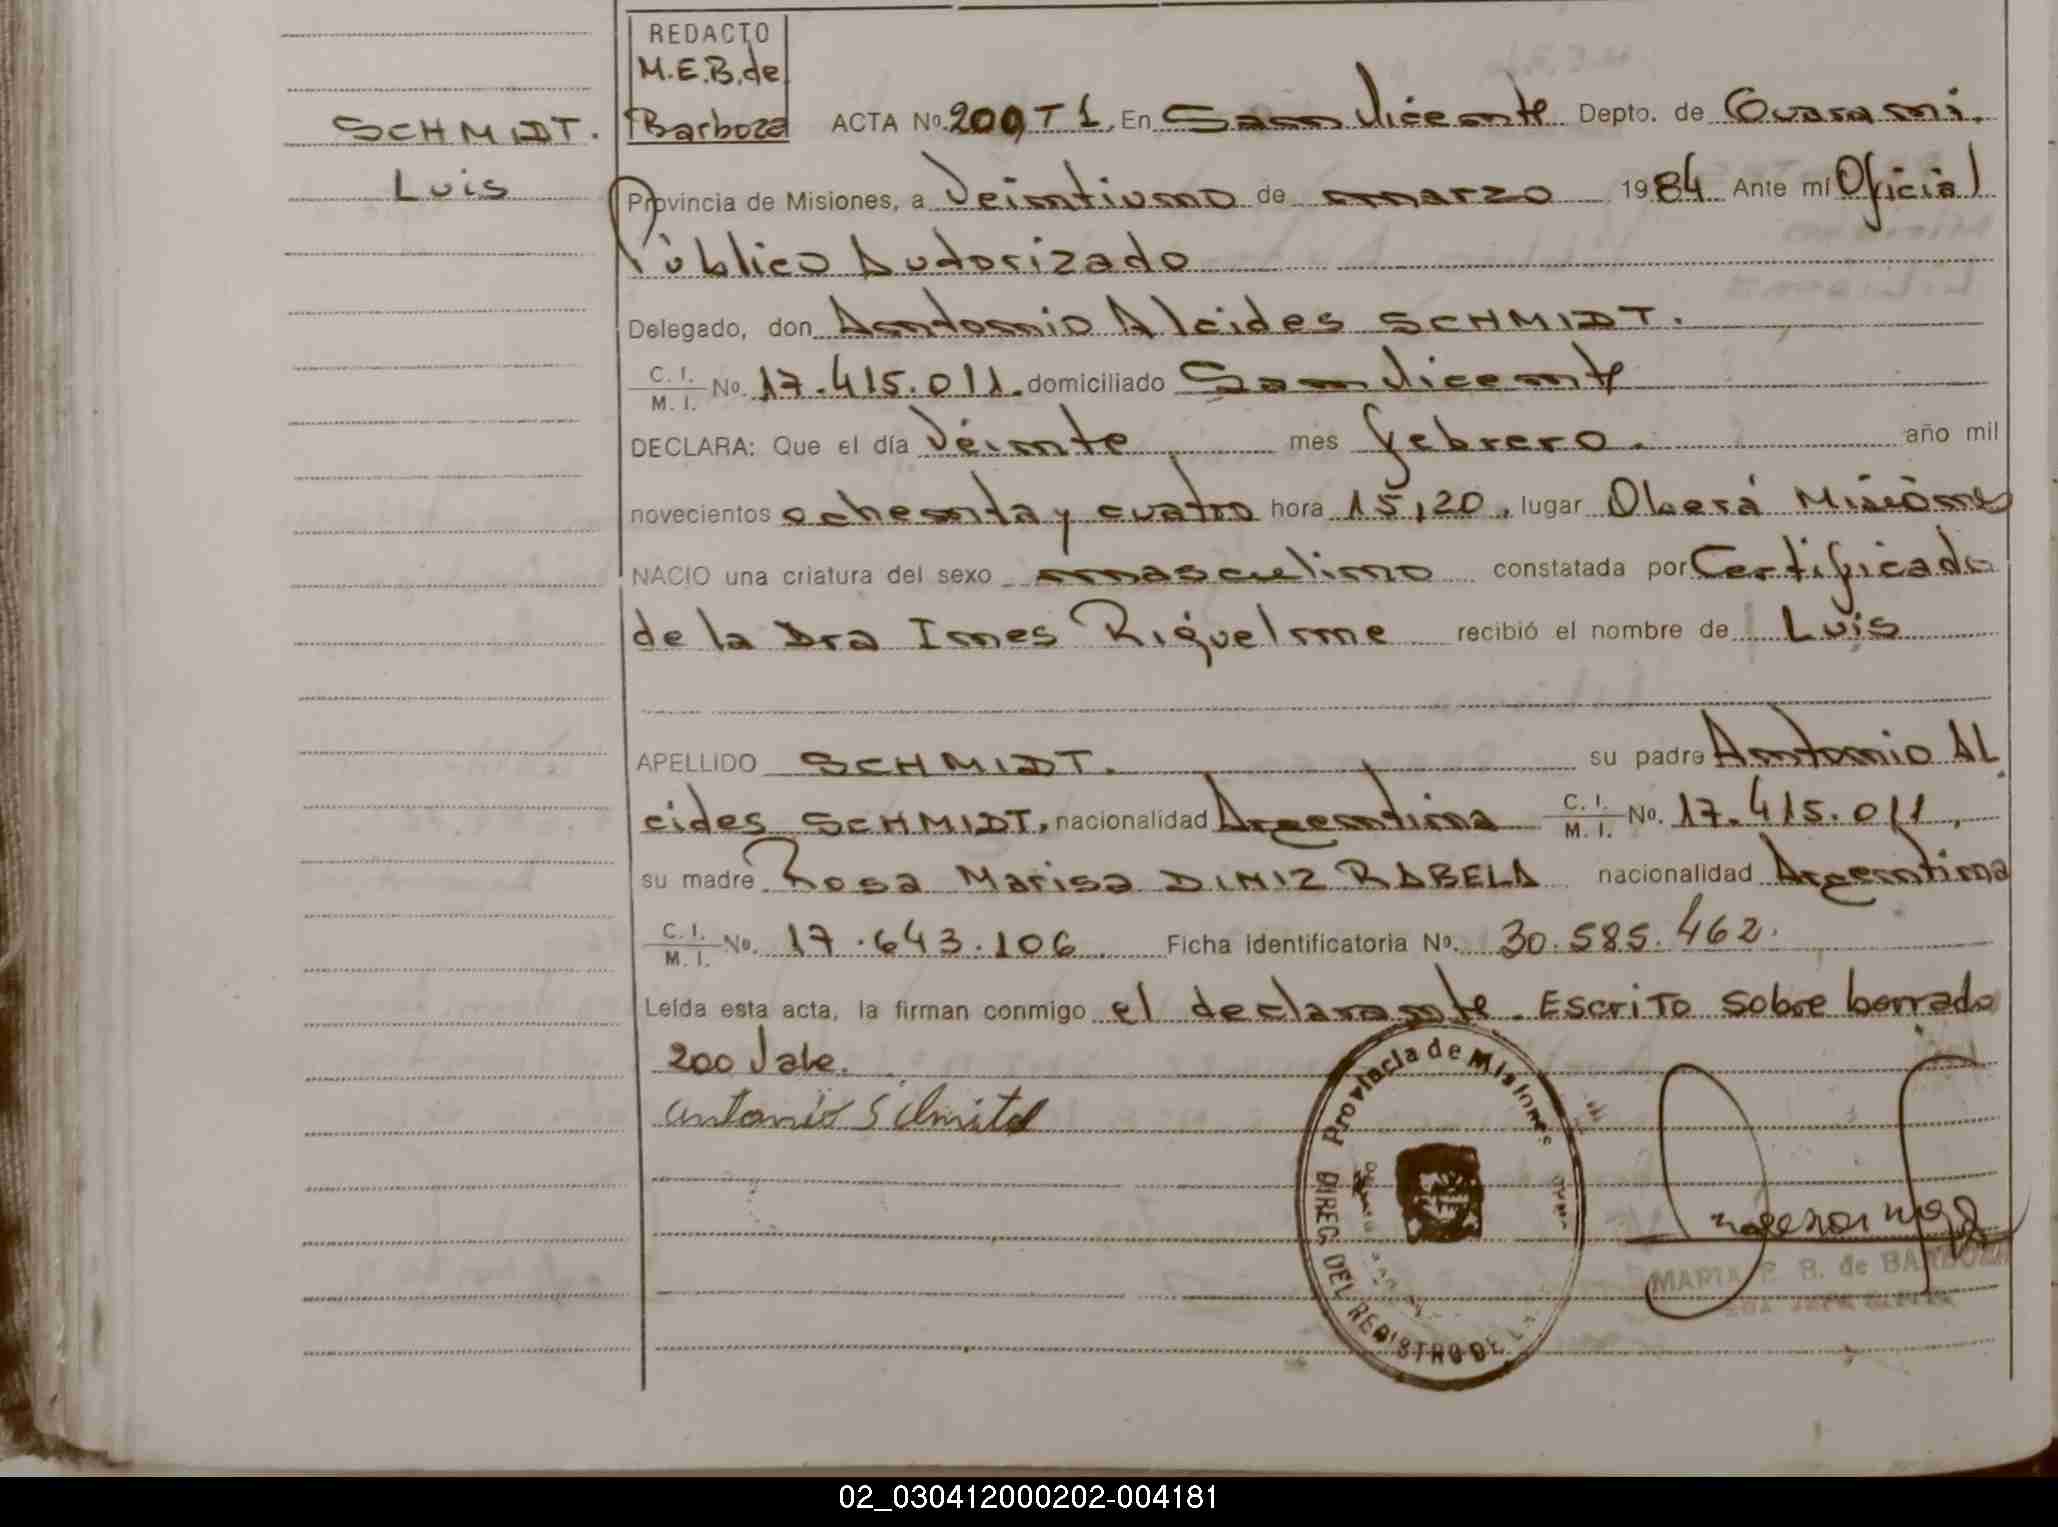 REDACTO
M.E.B. de
Barboza
SCHMIDT.
Luis
ACTA No. 200 T 1, En San Vicente Depto. de Guarani.
Provincia de Misiones, a Veintiuno de marzo 1984 Ante mí Oficial
Público Autorizado
Delegado, don Antonio Alcides SCHMIDT.
C. I. / M. I. No. 17.415.011. domiciliado San Vicente
DECLARA: Que el día Veinte mes febrero. año mil
novecientos ochenta y cuatro hora 15,20, lugar Oberá Misiones
NACIO una criatura del sexo masculino constatada por Certificado
de la Dra Ines Riquelme recibió el nombre de Luis
APELLIDO SCHMIDT. su padre Antonio Al
cides SCHMIDT, nacionalidad Argentina C. I. / M. I. No. 17.415.011,
su madre Rosa Marisa DINIZ RABELA nacionalidad Argentina
C. I. / M. I. No. 17.643.106 Ficha identificatoria No. 30.585.462.
Leída esta acta, la firman conmigo el declarante. Escrito sobre borrado
200 Vale.
Antonio Schmitd
Provincia de Misiones
DIREC. DEL REGISTRO DE
MARIA E. B. de BARBOZA
02_030412000202-004181